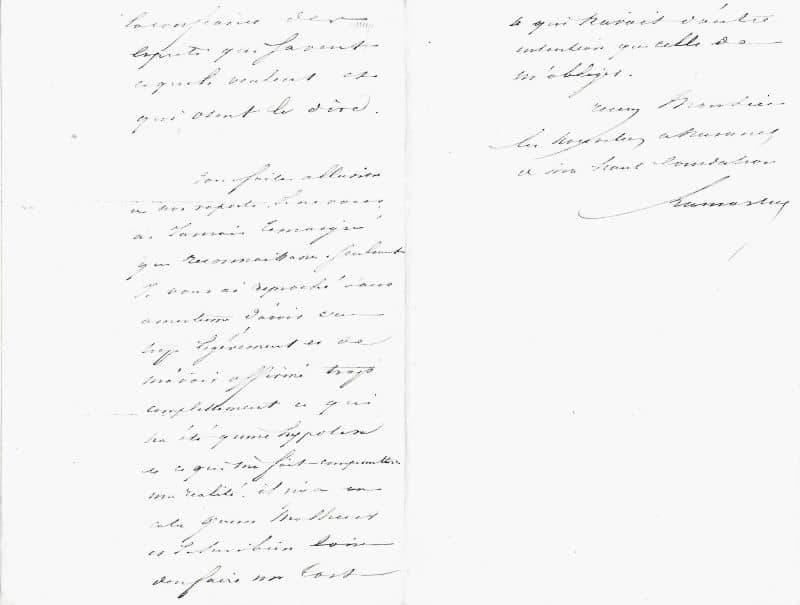 la confiance des
esprits qui savent
ce qu'ils veulent et
qui osent le dire.
vous faites allusion
à nos rapports. Je ne vous
ai jamais témoigné
que reconnaissance. Seulement
Je vous ai reproché sans
amertume d'avoir cru
trop légèrement et de
m'avoir affirmé trop
complettement ce qui
n'a été qu'une hypothèse
et ce qui m'a fait compromettre
une réalité. il n'y a en
cela qu'un malheur
et je suis bien loin
d'en faire un tort
à qui n'avait d'autre
intention que celle de
m'obliger.
recevez Monsieur
les
et ma haute considération
Lamartine